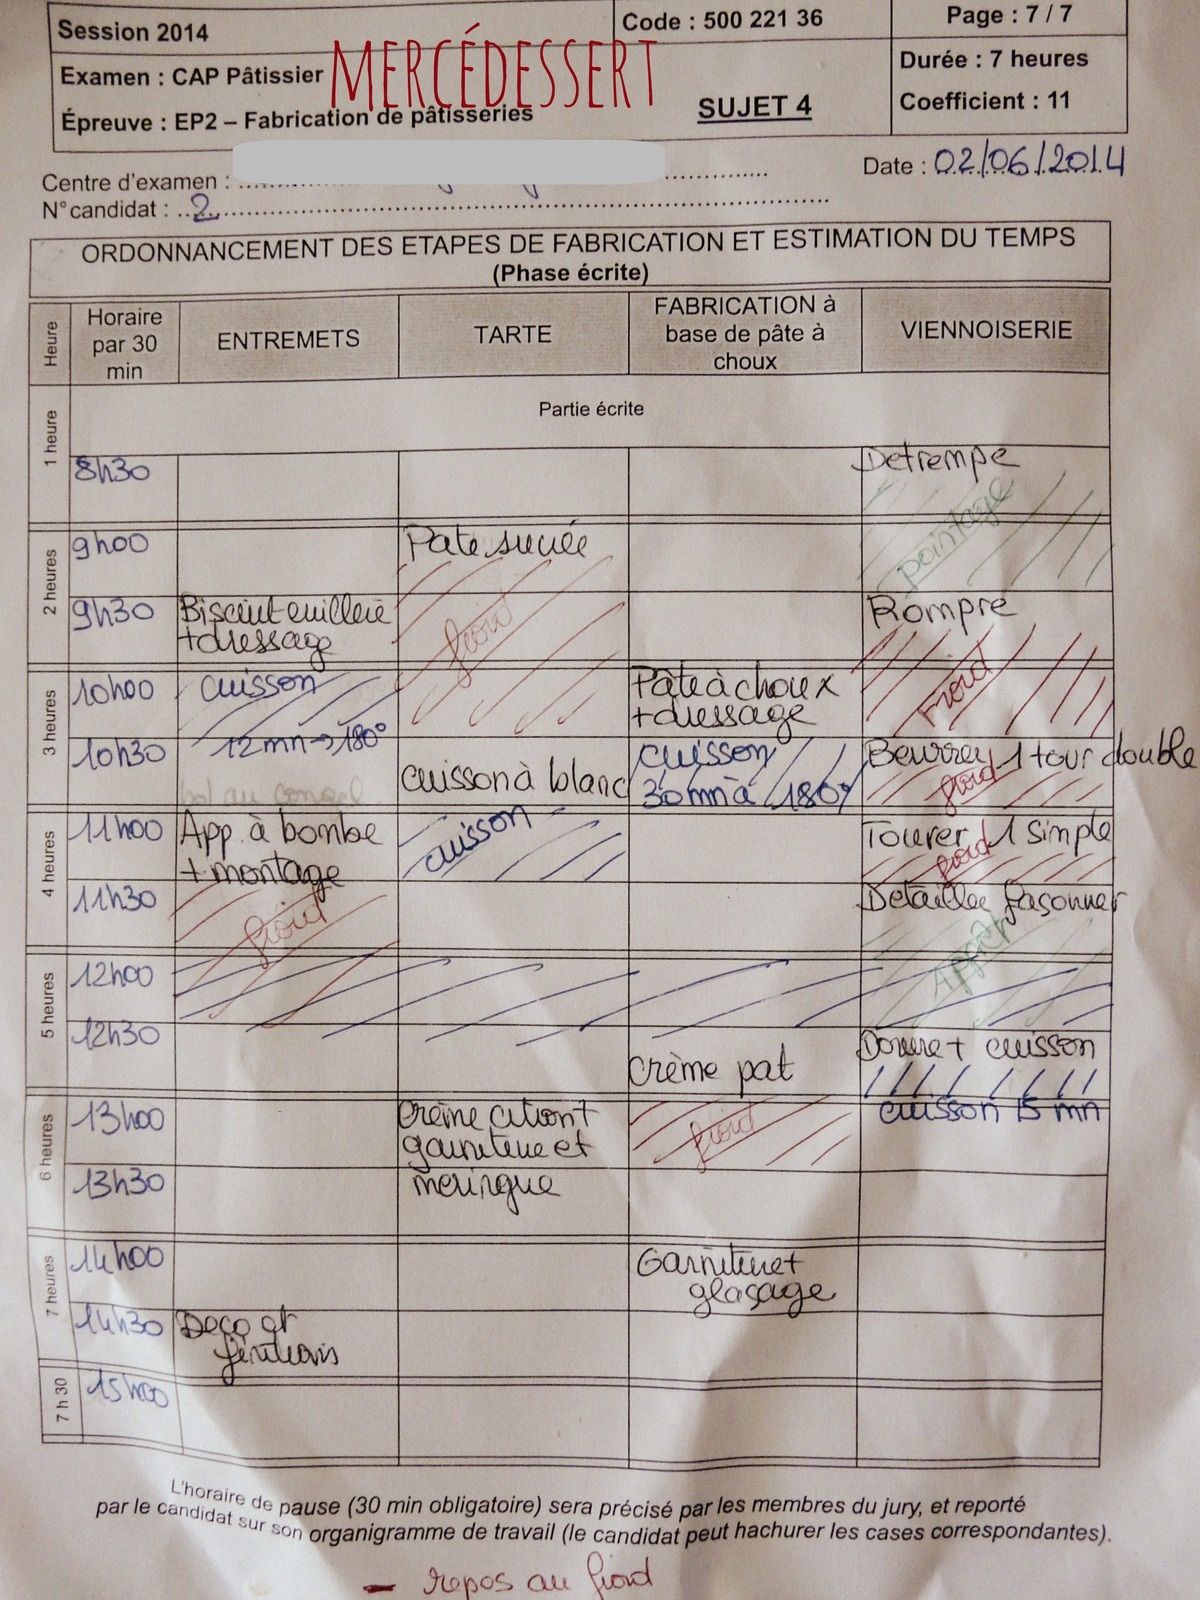 Session 2014
Code : 500 221 36
Page : 7 / 7
Examen : CAP Pâtissier
MERCÉDESSERT
Durée : 7 heures
Épreuve : EP2 – Fabrication de pâtisseries
SUJET 4
Coefficient : 11
Centre d'examen :
Date : 02/06/2014
N° candidat : 2
ORDONNANCEMENT DES ETAPES DE FABRICATION ET ESTIMATION DU TEMPS
(Phase écrite)
Heure
Horaire par 30 min
ENTREMETS
TARTE
FABRICATION à base de pâte à choux
VIENNOISERIE
1 heure
Partie écrite
8h30
Detrempe
pointage
2 heures
9h00
Pate sucrée
froid
9h30
Biscuit cuillere
+dressage
Rompre
froid
3 heures
10h00
cuisson
Pate à choux
+dressage
10h30
12mn → 180°
cuisson à blanc
cuisson
30mn à 180°
Beurrer 1 tour double
froid
4 heures
11h00
App. à bombe
+montage
cuisson
Tourer 1 simple
froid
11h30
froid
Detailler façonner
Apprêt
5 heures
12h00
12h30
crème pat
Dorure + cuisson
6 heures
13h00
crème citron +
garniture et
froid
cuisson 15 mn
13h30
meringue
7 heures
14h00
Garniture +
glaçage
14h30
Deco et
finitions
7 h 30
15h00
L'horaire de pause (30 min obligatoire) sera précisé par les membres du jury, et reporté
par le candidat sur son organigramme de travail (le candidat peut hachurer les cases correspondantes).
- repos au froid